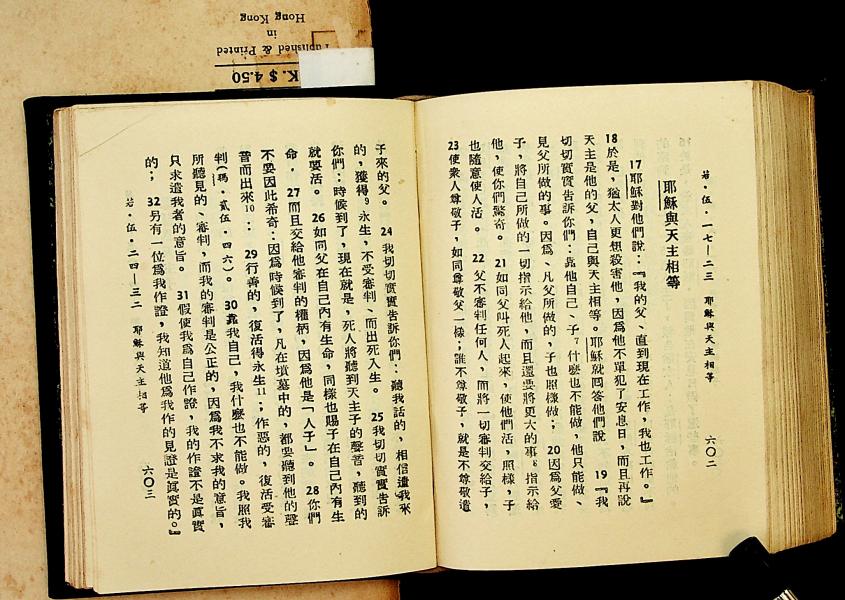 Published & Printed
in
Hong Kong
K. $ 4.50
若·伍·一七—二三 耶穌與天主相等 六〇二
耶穌與天主相等
17耶穌對他們說：『我的父、直到現在工作，我也工作。』
18於是，猶太人更想殺害他，因爲他不單犯了安息日，而且再說
天主是他的父，自己與天主相等。耶穌就囘答他們說 19『我
切切實實告訴你們：靠他自己、子7什麼也不能做，他只能做、
見父所做的事。因爲、凡父所做的，子也照樣做； 20因爲父愛
子，將自己所做的一切指示給他，而且還要將更大的事8指示給
他，使你們驚奇。 21如同父叫死人起來，使他們活，照樣，子
也隨意使人活。 22父不審判任何人，而將一切審判交給子，
23使衆人尊敬子，如同尊敬父一樣；誰不尊敬子，就是不尊敬遣
子來的父。 24我切切實實告訴你們：聽我話的，相信遣我來
的，獲得9永生，不受審判、而出死入生。 25我切切實實告訴
你們：時候到了，現在就是，死人將聽到天主子的聲音，聽到的
就要活。 26如同父在自己內有生命，同樣也賜子在自己內有生
命， 27而且交給他審判的權柄，因爲他是「人子」。 28你們
不要因此希奇：因爲時候到了，凡在墳墓中的，都要聽到他的聲
音而出來10： 29行善的，復活得永生11；作惡的，復活受審
判(瑪·貳伍·四六)。 30靠我自己，我什麼也不能做。我照我
所聽見的、審判，而我的審判是公正的，因爲我不求我的意旨，
只求遣我者的意旨。 31假使我爲自己作證，我的作證不是眞實
的； 32另有一位爲我作證，我知道他爲我作的見證是眞實的。』
若·伍·二四—三二 耶穌與天主相等 六〇三